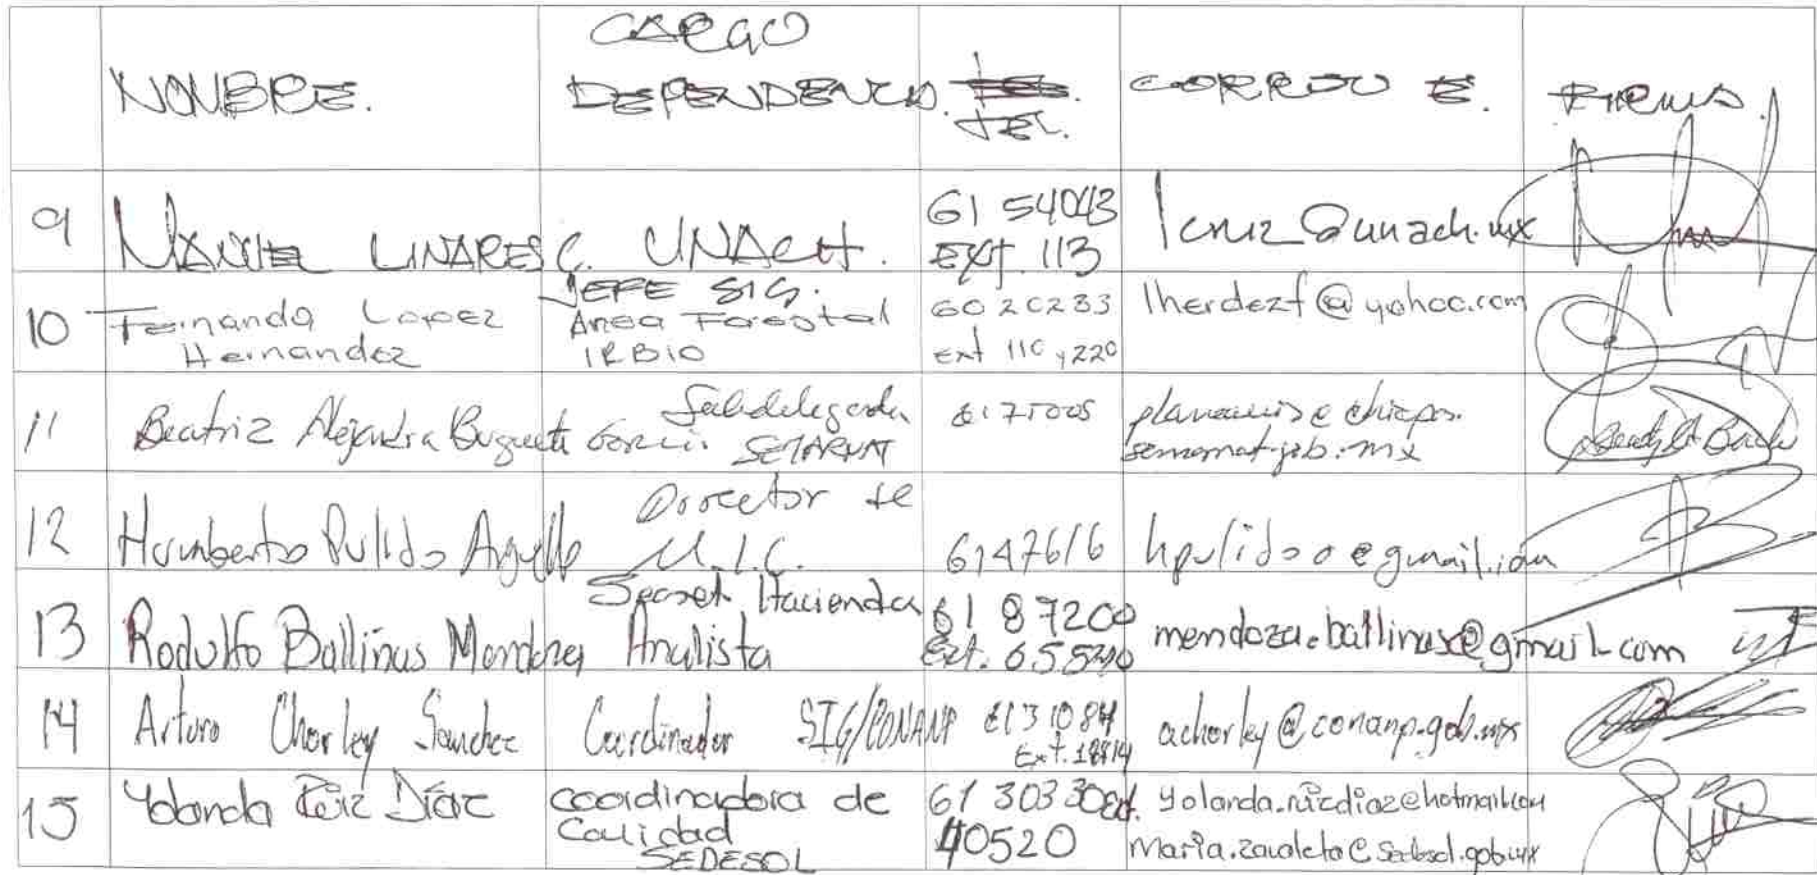 CARGO
NOMBRE. DEPENDENCIA. TEL. CORREO E. FIRMA.
9 MANUEL LINARES C. UNACH. 61 54043 EXT. 113 lcruz@unach.mx
10 Fernando Lopez Hernandez JEFE SIG. Area Forestal IRBIO 60 20233 Ext 110 y 220 lherdezf@yahoo.com
11 Beatriz Alejandra Buguete Subdelegada SEMARNAT 6175005
12 Humberto Pulido Director de U.I.C. 6147616
13 Rodulfo Ballinas Mendoza Secret. Hacienda Analista 61 87200 Ext. mendoza.ballinas@gmail.com
14 Arturo Chorley Sanchez Coordinador SIG/CONANP 6131084 Ext. achorley@conanp.gob.mx
15 Yolanda Díaz coordinadora de Calidad SEDESOL 61 30330 Ext. 40520 maria.zavaleta@sedesol.gob.mx